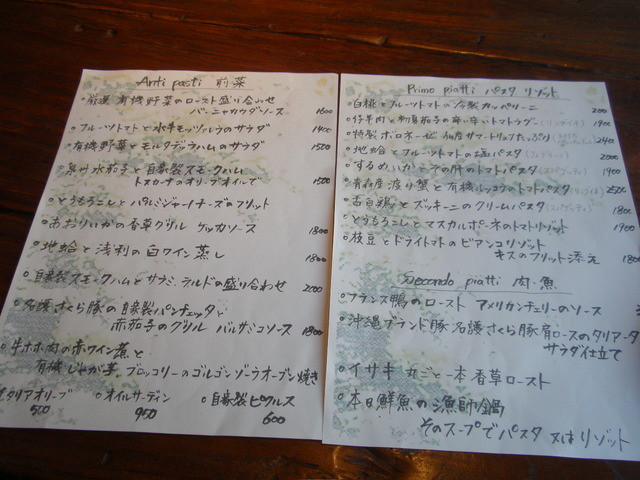 Anti pasti 前菜
○厳選 有機野菜のロースト盛り合わせ
バーニャカウダソース 1600
○フルーツトマトと水牛モッツァレラのサラダ 1400
○有機野菜とモルタデッラハムのサラダ 1500
○泉州水茄子と自家製スモークハム
トスカーナのオリーブオイルで 1500
○とうもろこしとパルミジャーノチーズのフリット
○あおりいかの香草グリル ケッカソース 1800
○地蛤と浅利の白ワイン蒸し 1800
○自家製スモークハムとサラミ、ラルドの盛り合わせ 2000
○名護さくら豚の自家製パンチェッタと
赤茄子のグリル バルサミコソース 1800
○牛ホホ肉の赤ワイン煮と
有機じゃが芋、ブロッコリーのゴルゴンゾーラオーブン焼き
イタリアオリーブ ○オイルサーディン ○自家製ピクルス
500 950 600
Primo piatti パスタ リゾット
○白桃とフルーツトマトの冷製カッペリーニ
○仔羊肉と茄子の辛いトマトラグー 1900
○特製ボロネーゼ サマートリュフたっぷり
○地蛤とフルーツトマトの塩パスタ 2000
○するめいかとその肝のトマトパスタ 1900
○青森産渡り蟹と有機ルッコラのトマトパスタ 2500
○古白鶏とズッキーニのクリームパスタ 1800
○とうもろこしとマスカルポーネのトマトリゾット 1900
○枝豆とドライトマトのビアンコリゾット
キスのフリット添え
Secondo piatti 肉・魚
○フランス鴨のロースト アメリカンチェリーのソース
○沖縄ブランド豚、名護さくら豚肩ロースのタリアータ
サラダ仕立て
○イサキ 丸ごと一本 香草ロースト
○本日鮮魚の漁師鍋
そのスープでパスタ 又はリゾット